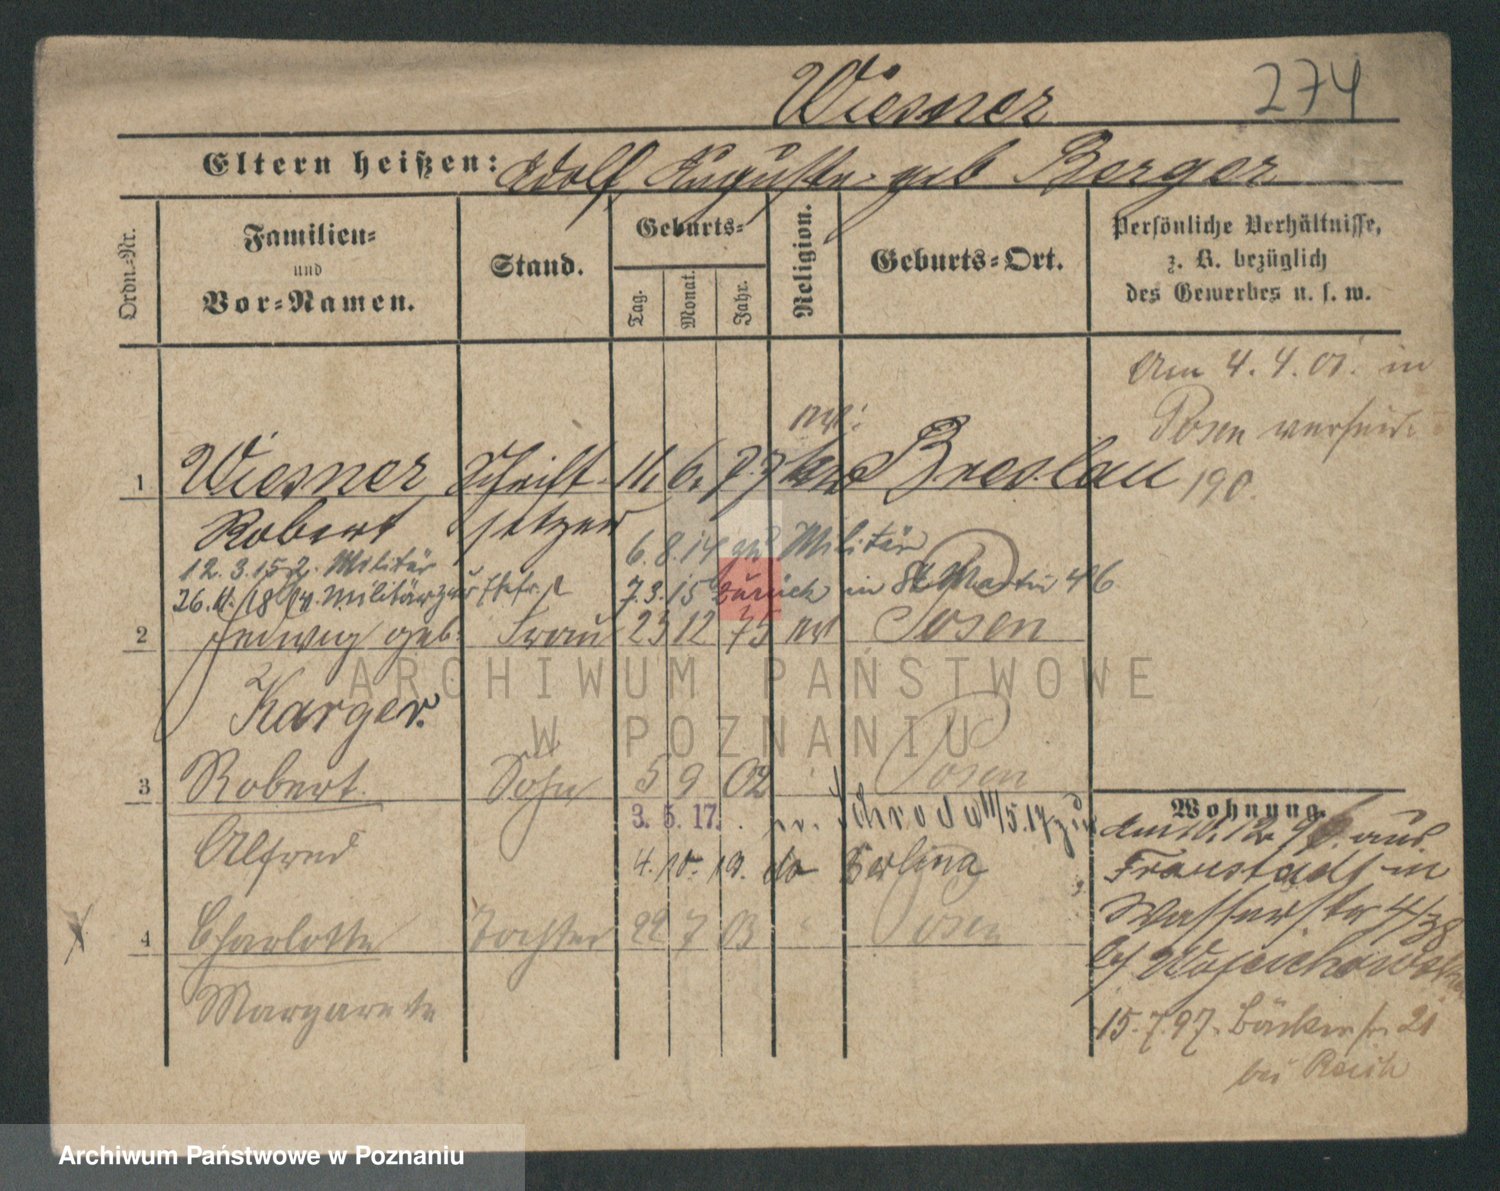 Wiesner
274
Eltern heißen: Adolf, Auguste geb Berger
Ordn.-Nr.
Familien-
und
Vor-Namen.
Stand.
Geburts-
Tag.
Monat.
Jahr.
Religion.
Geburts-Ort.
Persönliche Verhältnisse,
z. B. bezüglich
des Gewerbes u. s. w.
Am 4. 4. 01. in
Posen
190
1 Wiesner Schrift- 11. 6. 77 Breslau
Robert setzer
6.8.14 Militär
12.3.15 z. Militär
7.3.15 zurück in St Martin 46
26.11./18 Militär
2 Hedwig geb. Frau 23 12 75 Posen
Karger.
3 Robert Sohn 5 9 02 Posen
3. 5. 17. Schroda 11/5.17
Alfred
4. 10. 19. do Berlin
4 Charlotte Tochter 22 7 03 Posen
Margarete
Wohnung.
aus
Fraustadt in
Wasserstr 4/38
15.7.97. Bäckerstr. 21
bei Reich
ARCHIWUM PAŃSTWOWE
W POZNANIU
Archiwum Państwowe w Poznaniu